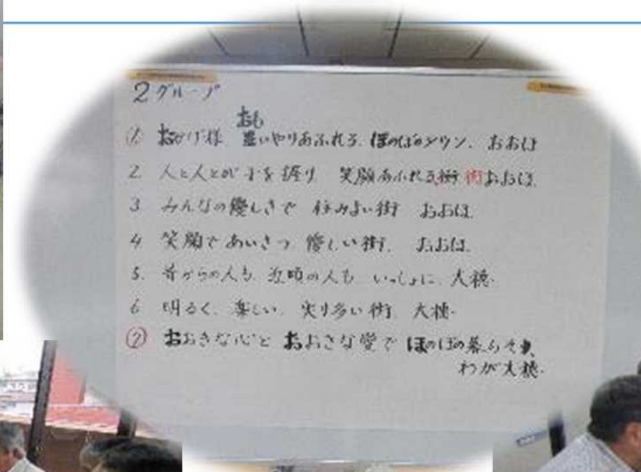 2グループ
① おかげ様 思いやりあふれる ほのぼのタウン、おおほ
おも
2 人と人とが手を握り 笑顔あふれる街 街おおほ
3 みんなの優しさで 住みよい街 おおほ
4 笑顔であいさつ 優しい街、おおほ
5. 昔からの人も 近頃の人も いっしょに 大穂.
6 明るく、楽しい、実り多い街 大穂.
⑦ おおきな心と おおきな愛で ほのぼの暮らそ
わが大穂.